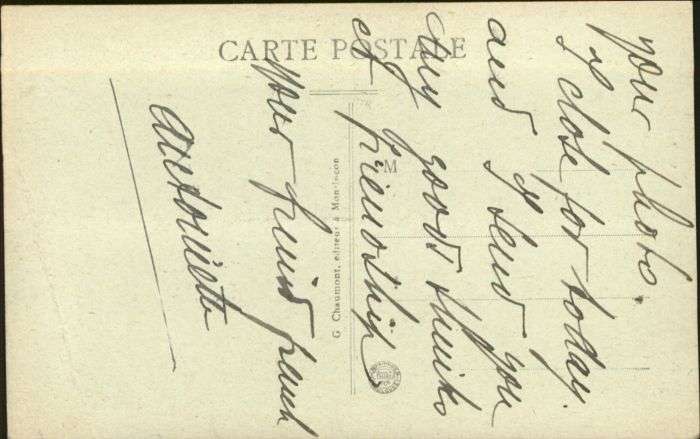 CARTE POSTALE
M
G Chaumont, éditeur à Montluçon
your photo.
I close for today.
and I send you
my good thinks
of friendship
your friend french
Antoinette